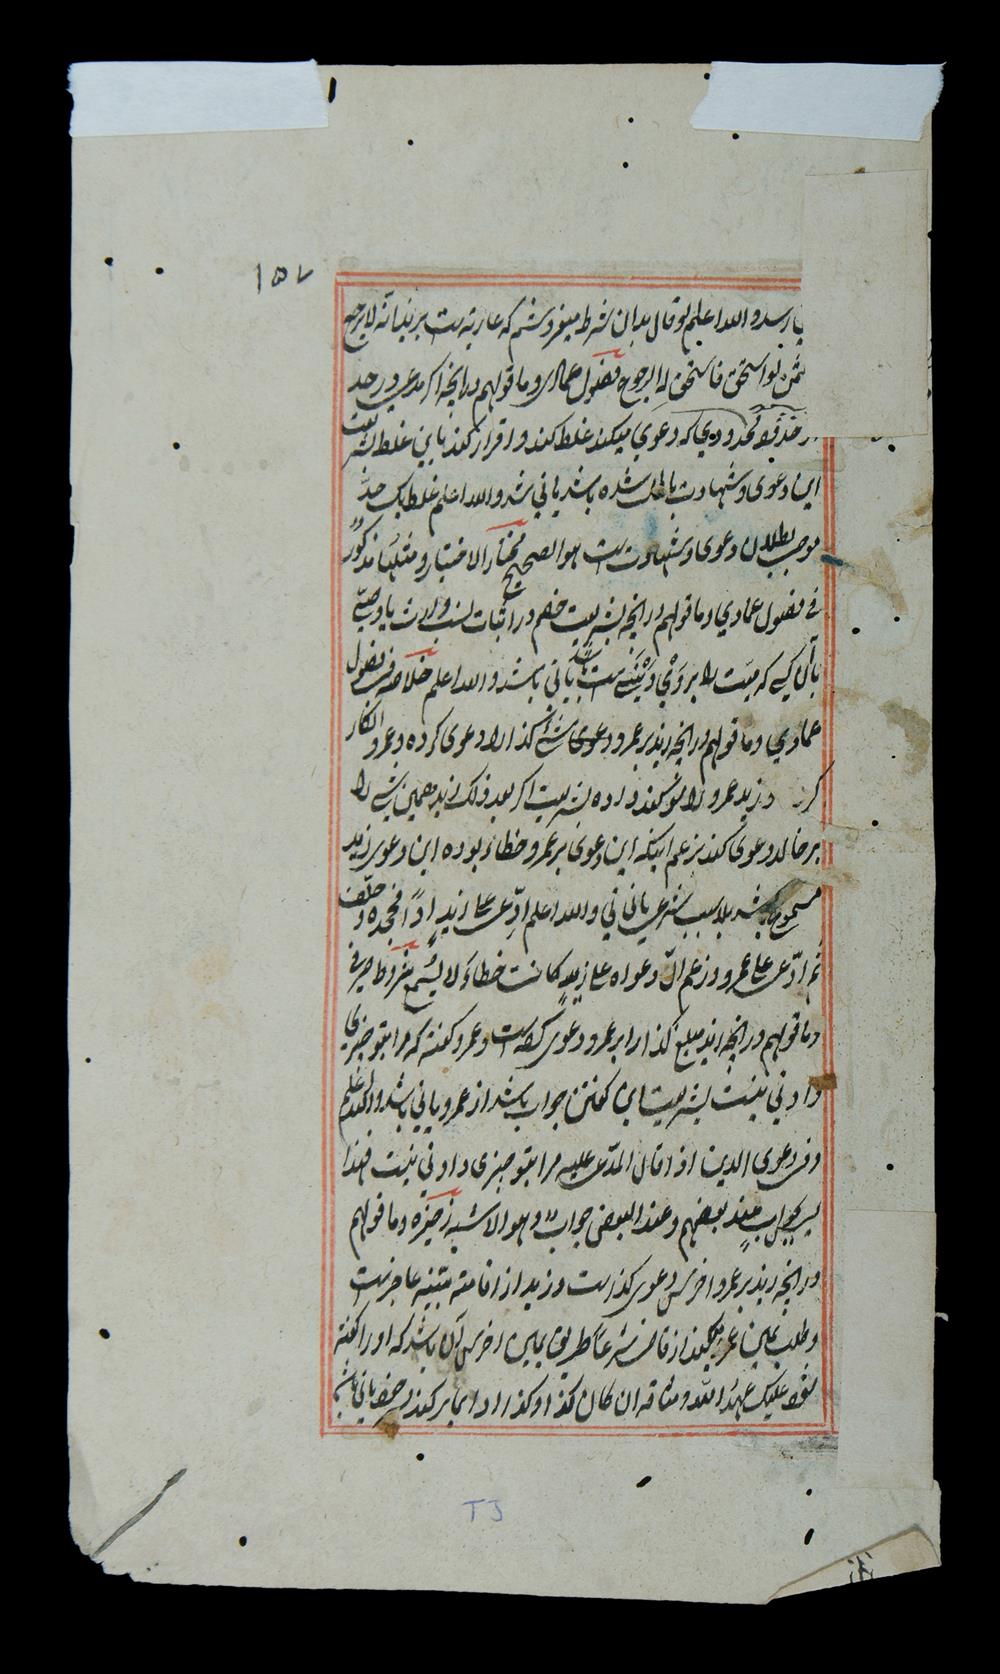 ۱۵۷
والله اعلم لو قال بدان شرط میفروشم که عاریة است بر زید انّه لا یرجع
لو استحق فاستحق له الرجوع فصول عمادی و ما قولهم در آنچه اگر مدعی در حد
محدودی که دعوی میکند غلط کند و اقرار کند باین غلط بشریعت
این دعوی و شهادت باطل شده باشد یا نی شد والله اعلم غلط یک حدّ
موجب بطلان دعوی و شهادت است هو الصحیح مختار الاختیار و مثلها مذکور
فی فصول عمادی و ما قولهم در آنچه بشریعت خصم در اثبات نسب وارث یا وصیّ
یا آن کسی که میّت را بر وَیْ دَیْنے است باشد یا نی باشد والله اعلم خلاصه فصول
عمادی و ما قولهم در آنچه زید بر عمرو دعوی شئ کذا را دعوی کرده و عمرو انکار
کرد و زید عمرو را سوگند داده بشریعت اگر بعد ذلک زید همین شئ را
بر خالد دعوی کند بزعم اینکه این دعوی بر عمرو خطاء بوده این دعوی زید
مسموع باشد بلا سبب شرعی یا نی نی والله اعلم ادّعی علی زیدٍ فجحده و حلف
ثم ادّعی علی عمرو و زعم انّ دعواه علی زیدٍ کانت خطاءً لا یُسمع
و ما قولهم در آنچه زید مبلغ کذا را بر عمرو دعوی کرده است و عمرو گفته که مرا بتو چیزی
دادنی نیست بشریعت این گفتن جواب باشد از عمرو یا نی باشد والله اعلم
و فی دعوی الدین اذا قال المدّعی علیه مرا بتو چیزی دادنی نیست فهذا
لیس بجوابٍ عند بعضهم و عند البعض جوابٌ و هو الاشبه ذخیره و ما قولهم
در آنچه زید بر عمرو اخرس دعوی کذا است و زید از اقامت بیّنه عاجز است
و طلب یمین عمرو میکند از قاضی شرعًا طریق یمین اخرس آن باشد که او را گفته
شود علیک عهد اللّه و میثاقه ان کان کذا و کذا او ایما بر کند یا نی باشد
TJ